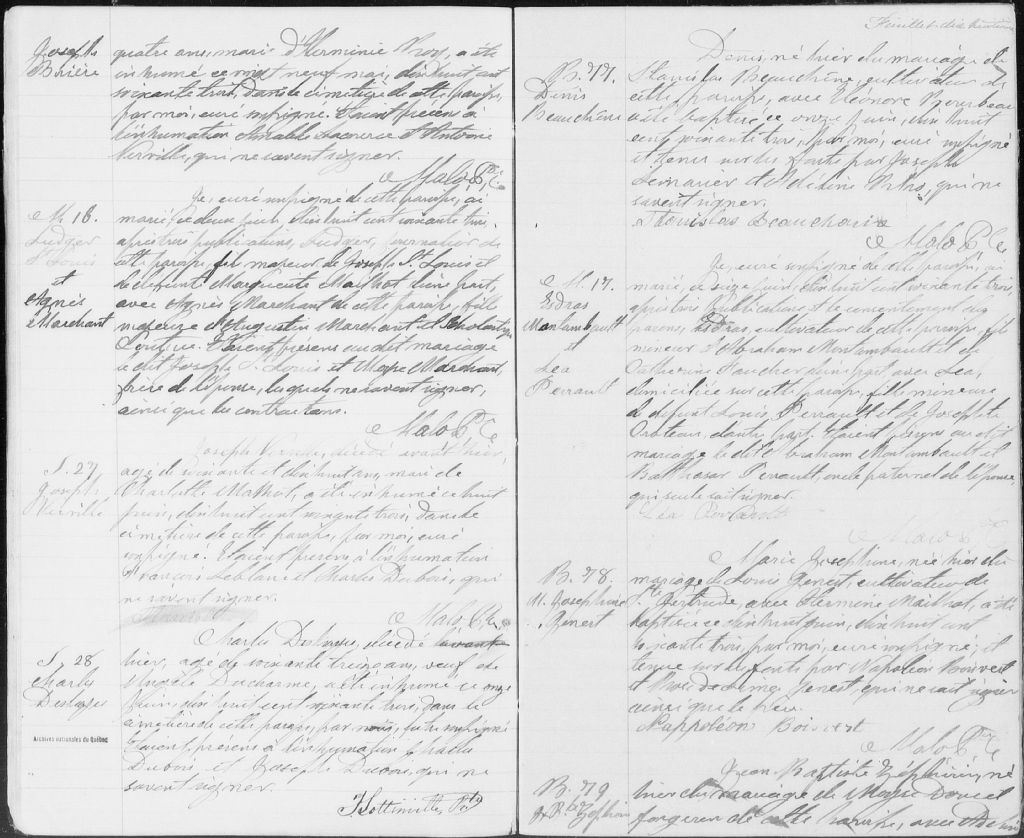 Joseph
Birière
quatre ans, marié d'Herminie Roy, a été
inhumé ce vingt neuf mai, dix huit cent
soixante trois, dans le cimetière de cette paroisse,
par moi, curé soussigné. Etaient présens à
l'inhumation Lacourse et Antoine
Verville, qui ne savent signer.
Malo Ptre C.
M. 16.
Ludger
St Louis
et
Agnès
Marchant
Je, curé soussigné de cette paroisse, ai
marié, ce deux juin, dix huit cent soixante trois,
après trois publications, Ludger, journalier de
cette paroisse, fils majeur de Joseph St. Louis et
de défunte Marguerite Mailhot d'une part,
avec Agnès Marchant de cette paroisse, fille
majeure d'Augustin Marchant et Scholastique
. Etaient présens au dit mariage
le dit Joseph St. Louis et Moyse Marchant,
frère de l'épouse, lesquels ne savent signer,
ainsi que les contractans.
Malo Ptre C
S. 27
Joseph
Verville
Joseph Verville, décédé avant hier,
agé de soixante et dix huit ans, mari de
Charlotte Mailhot, a été inhumé ce huit
juin, dix huit cent soixante trois, dans le
cimetière de cette paroisse, par moi, curé
soussigné. Etaient présens à l'inhumation
François Leblanc et Charles Dubois, qui
ne savent signer.
Malo Ptre C.
S. 28
Charles
Deslayes
Charles Deslayes, décédé avant
hier, agé de soixante treize ans, veuf de
Angèle Ducharme, a été inhumé ce onze
Juin, dix huit cent soixante trois, dans le
cimetière de cette paroisse, par nous, prêtre soussigné
Etaient présens à l'inhumation Charles
Dubois et Joseph Dubois, qui ne
savent signer.
Archives nationales du Québec
Feuillet dix huitième
B. 77.
Denis
Beauchène
Denis, né hier du mariage de
Stanislas Beauchène, cultivateur de
cette paroisse, avec Eléonore Bourbeau
a été baptisé ce onze juin, dix huit
cent soixante trois, par moi, curé soussigné
et tenu sur les fonts par Joseph
Lemarier et Médérine Pithre, qui ne
savent signer.
Beauchaine
Malo Ptre C.
M. 17.
Esdras
Montambault
et
Léa
Perrault
Je, curé soussigné de cette paroisse, ai
marié, ce seize juin, dix huit cent soixante trois,
après trois publications et le consentement des
parens, Esdras, cultivateur de cette paroisse, fils
mineur d'Abraham Montambault et de
Catherine Faucher d'une part avec Léa,
domiciliée sur cette paroisse, fille mineure
de défunt Louis Perrault et de Josephte
Croteau, d'autre part. Etaient présens au dit
mariage le dit Abraham Montambault et
Balthasar Perrault, oncle paternel de l'épouse,
qui seule sait signer.
Léa
Malo Ptre C
B. 78.
M. Josephine
Genest
Marie Josephine, née hier du
mariage de Louis Genest, cultivateur de
Ste Gertrude, avec Hermine Mailhot, a été
baptisée ce dix huit juin, dix huit cent
soixante trois, par moi, curé soussigné, et
tenue sur les fonts par Napoléon Boisvert
et Genest, qui ne sait signer
ainsi que le père.
Nappoléon Boisvert
Malo Ptre C
B. 79
J. Bte Zéphirin
Jean Baptiste Zéphirin, né
hier du mariage de Moyse Doucet
forgeron de cette paroisse, avec